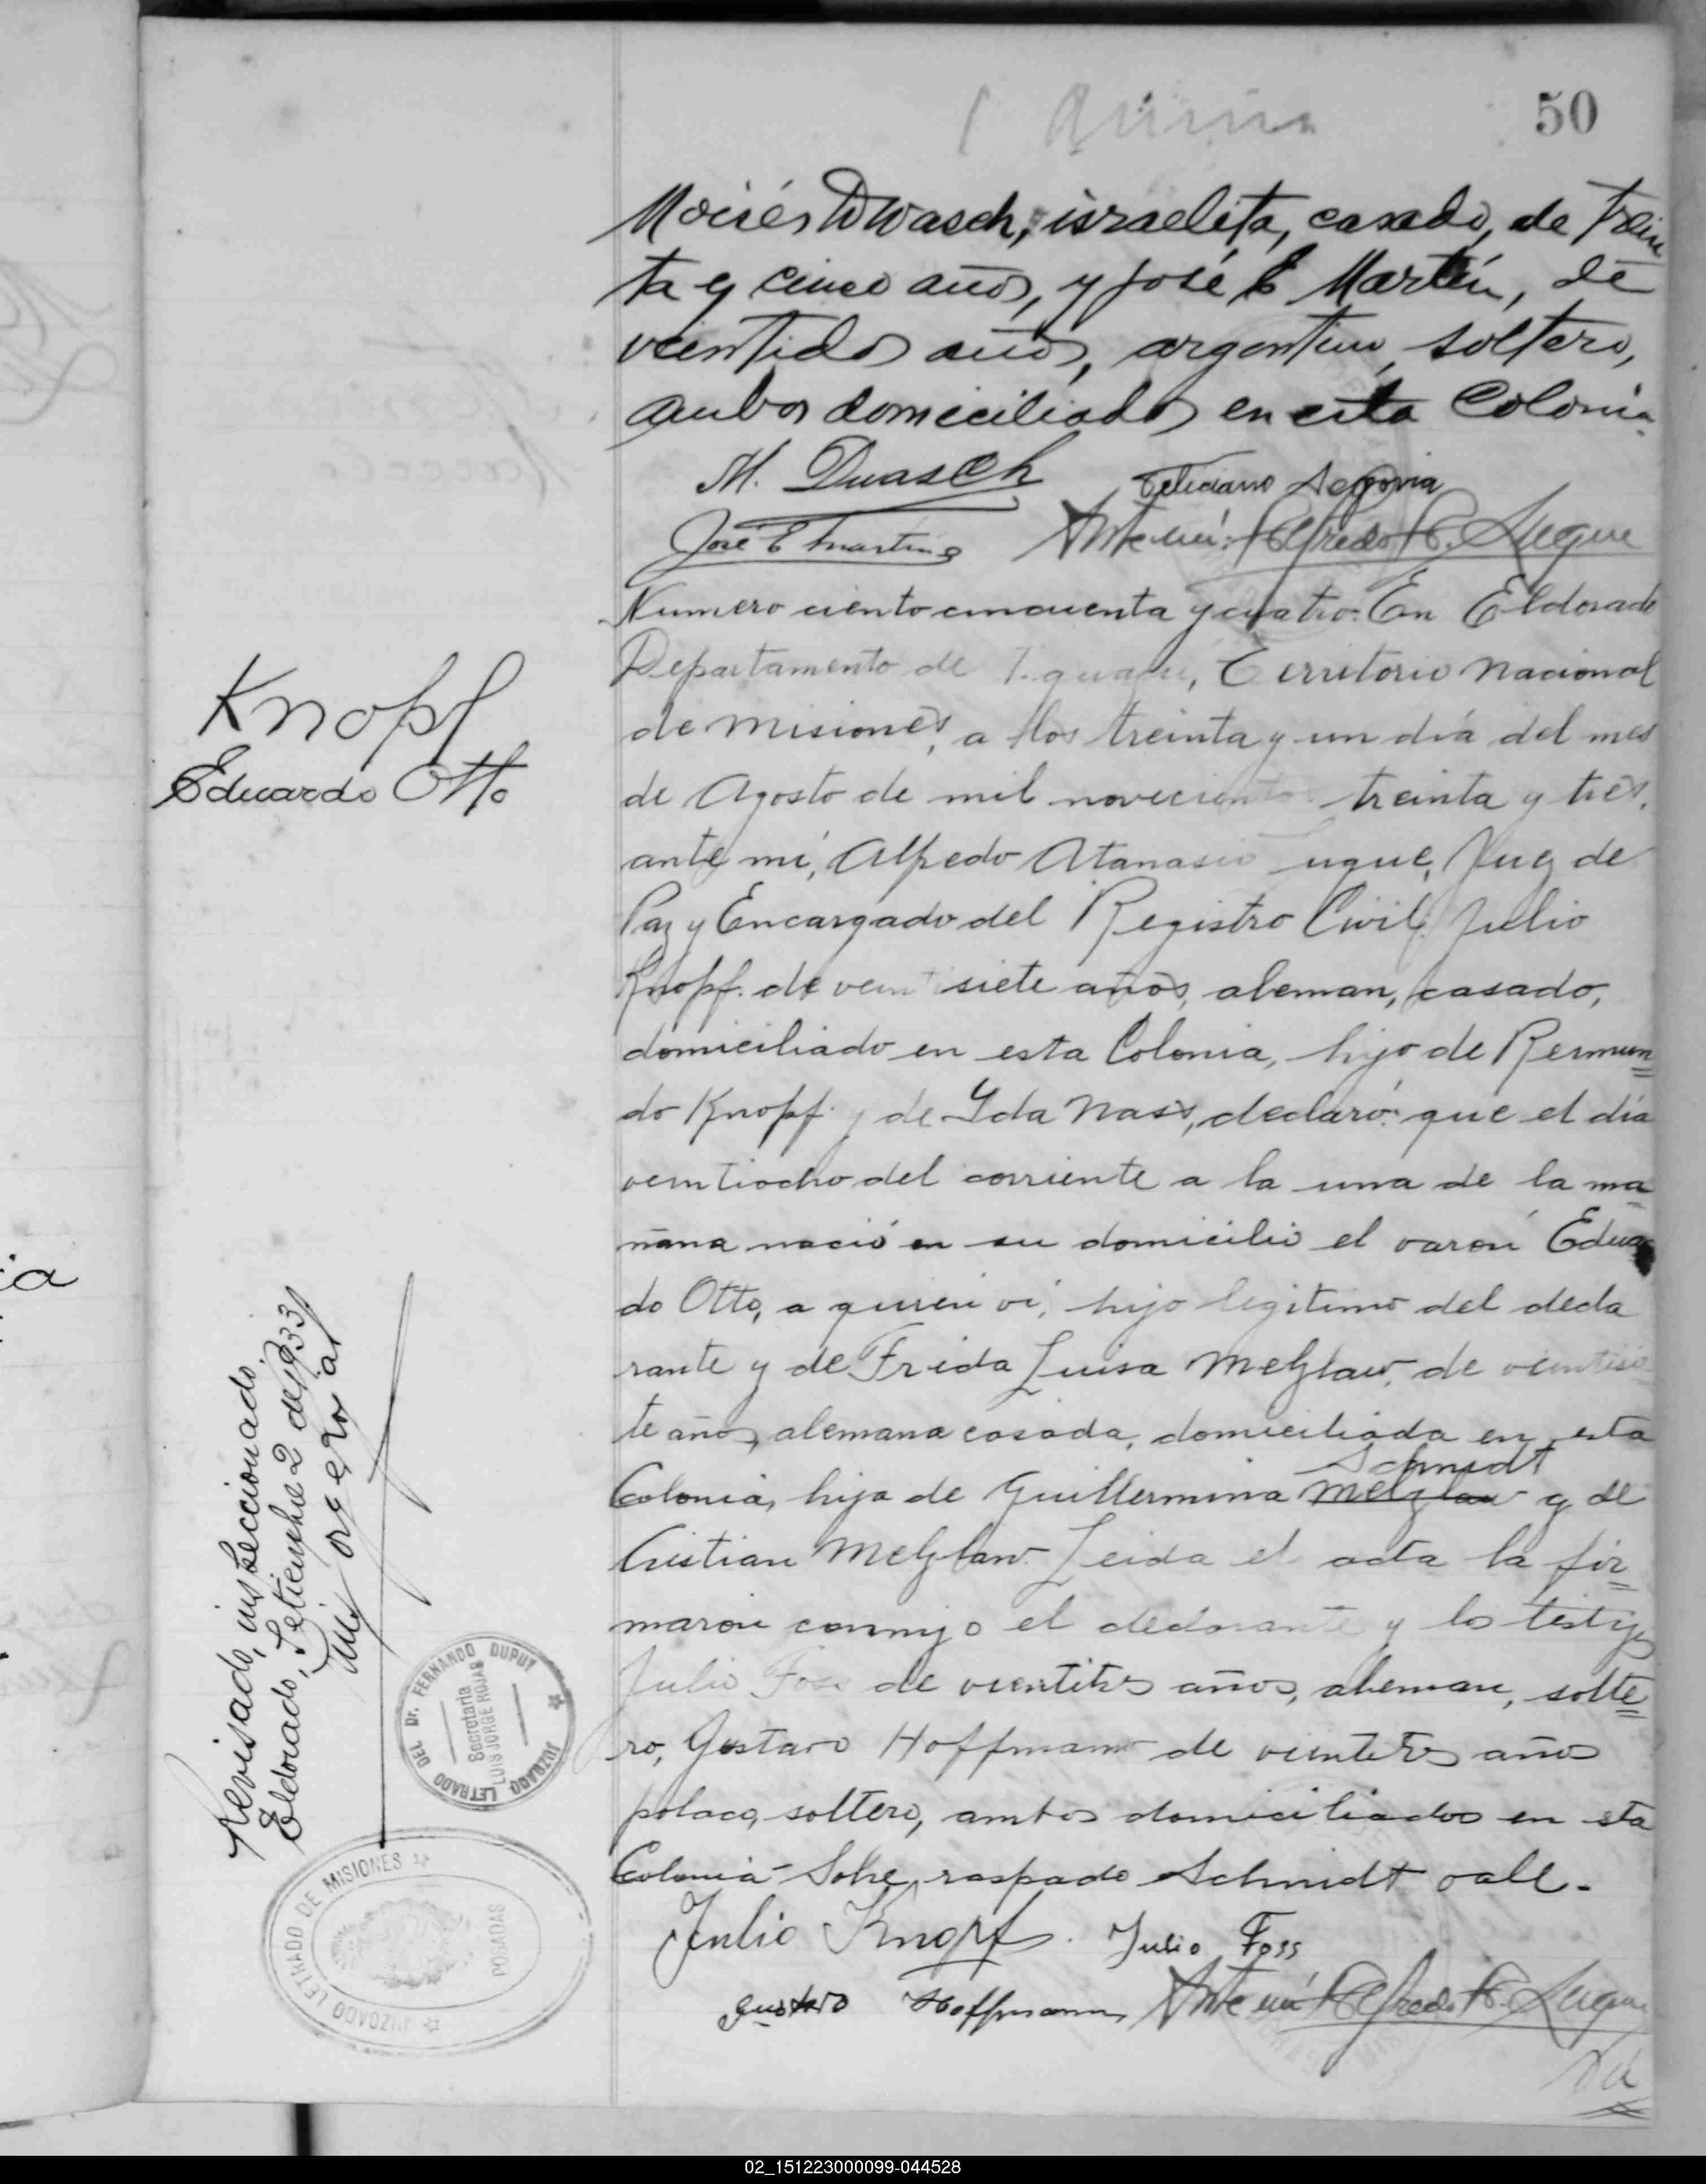 50
Moisés Dwasch, israelita, casado, de trein
ta y cinco años, y José E Martín, de
veintidos años, argentino, soltero,
ambos domiciliados en esta Colonia.
M. Dwasch Feliciano Segovia
José E Martin Ante mi: Alfredo A. Lugue
Knopf
Eduardo Otto
Numero ciento cincuenta y cuatro: En Eldorado
Departamento de Iguazú, Territorio Nacional
de Misiones, a los treinta y un día del mes
de Agosto de mil novecientos treinta y tres,
ante mí, Alfredo Atanasio Lugue, Juez de
Paz y Encargado del Registro Civil, Julio
Knopf. de veintisiete años, aleman, casado,
domiciliado en esta Colonia, hijo de Rermun=
do Knopf y de Yda Nass, declaró: que el día
veintiocho del corriente a la una de la ma
ñana nació en su domicilio el varón Eduar
do Otto, a quien vi, hijo legitimo del decla
rante y de Frida Luisa Metzlaw, de veintisie
te años, alemana casada, domiciliada en esta
Schmidt
Colonia, hija de Guillermina Metzlaw y de
Cristian Metzlaw. Leida el acta la fir=
maron conmigo el declarante y los testigos
Julio Foss de veintitres años, aleman, solte=
ro, Gustavo Hoffmann de veintitres años
polaco, soltero, ambos domiciliados en esta
Colonia - Sobre raspado Schmidt vale.
Julio Knopf. Julio Foss
Gustavo Hoffmann Ante mi: Alfredo A. Lugue
Revisado, inspeccionado.
Eldorado, Setiembre 2 de 1933
Luis Jorge Rojas
JUZGADO LETRADO DEL Dr. FERNANDO DUPUY
Secretaria
LUIS JORGE ROJAS
JUZGADO LETRADO DE MISIONES
POSADAS
02_151223000099-044528